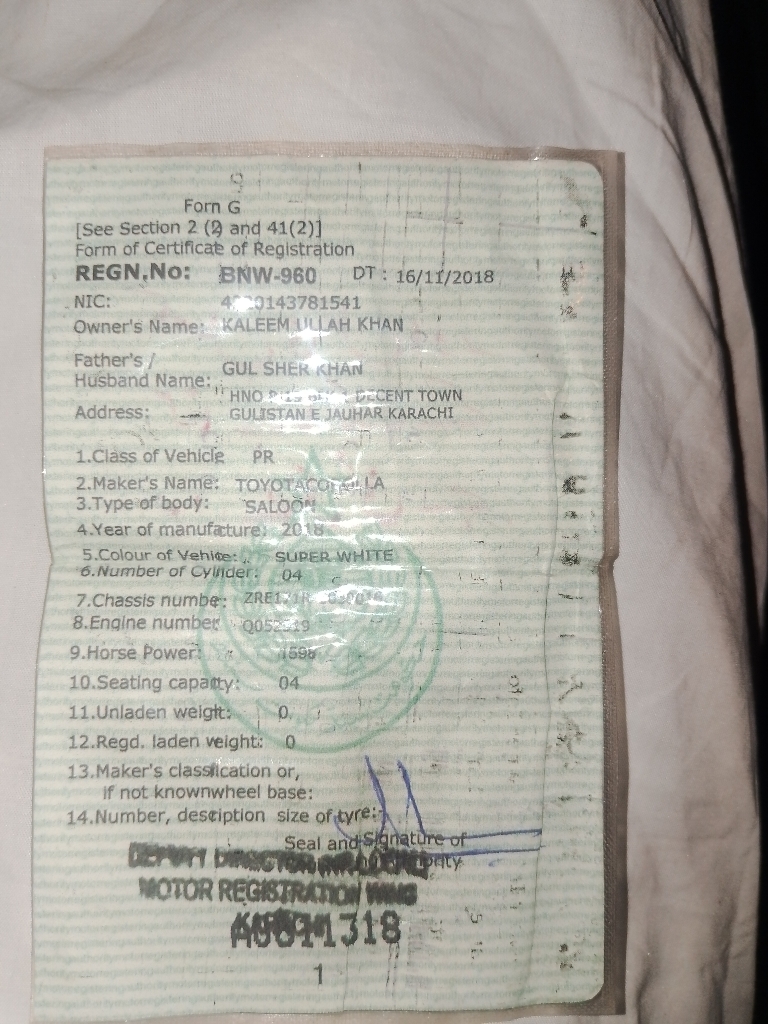 Forn G
[See Section 2 (2) and 41(2)]
Form of Certificate of Registration
REGN.No: BNW-960 DT : 16/11/2018
NIC:
Owner's Name: KALEEM ULLAH KHAN
Father's /
Husband Name: GUL SHER KHAN
HNO DECENT TOWN
Address: GULISTAN E JAUHAR KARACHI
1.Class of Vehicle PR
2.Maker's Name: TOYOTACOROLLA
3.Type of body: SALOON
4.Year of manufacture: 2018
5.Colour of Vehicle: SUPER WHITE
6.Number of Cylinder: 04
7.Chassis number:
8.Engine number
9.Horse Power: 1598
10.Seating capacity: 04
11.Unladen weight: 0
12.Regd. laden weight: 0
13.Maker's classification or,
if not knownwheel base:
14.Number, desciption size of tyre:
Seal and Signature of
DEPUTY DIRECTOR
MOTOR REGISTRATION WING
1